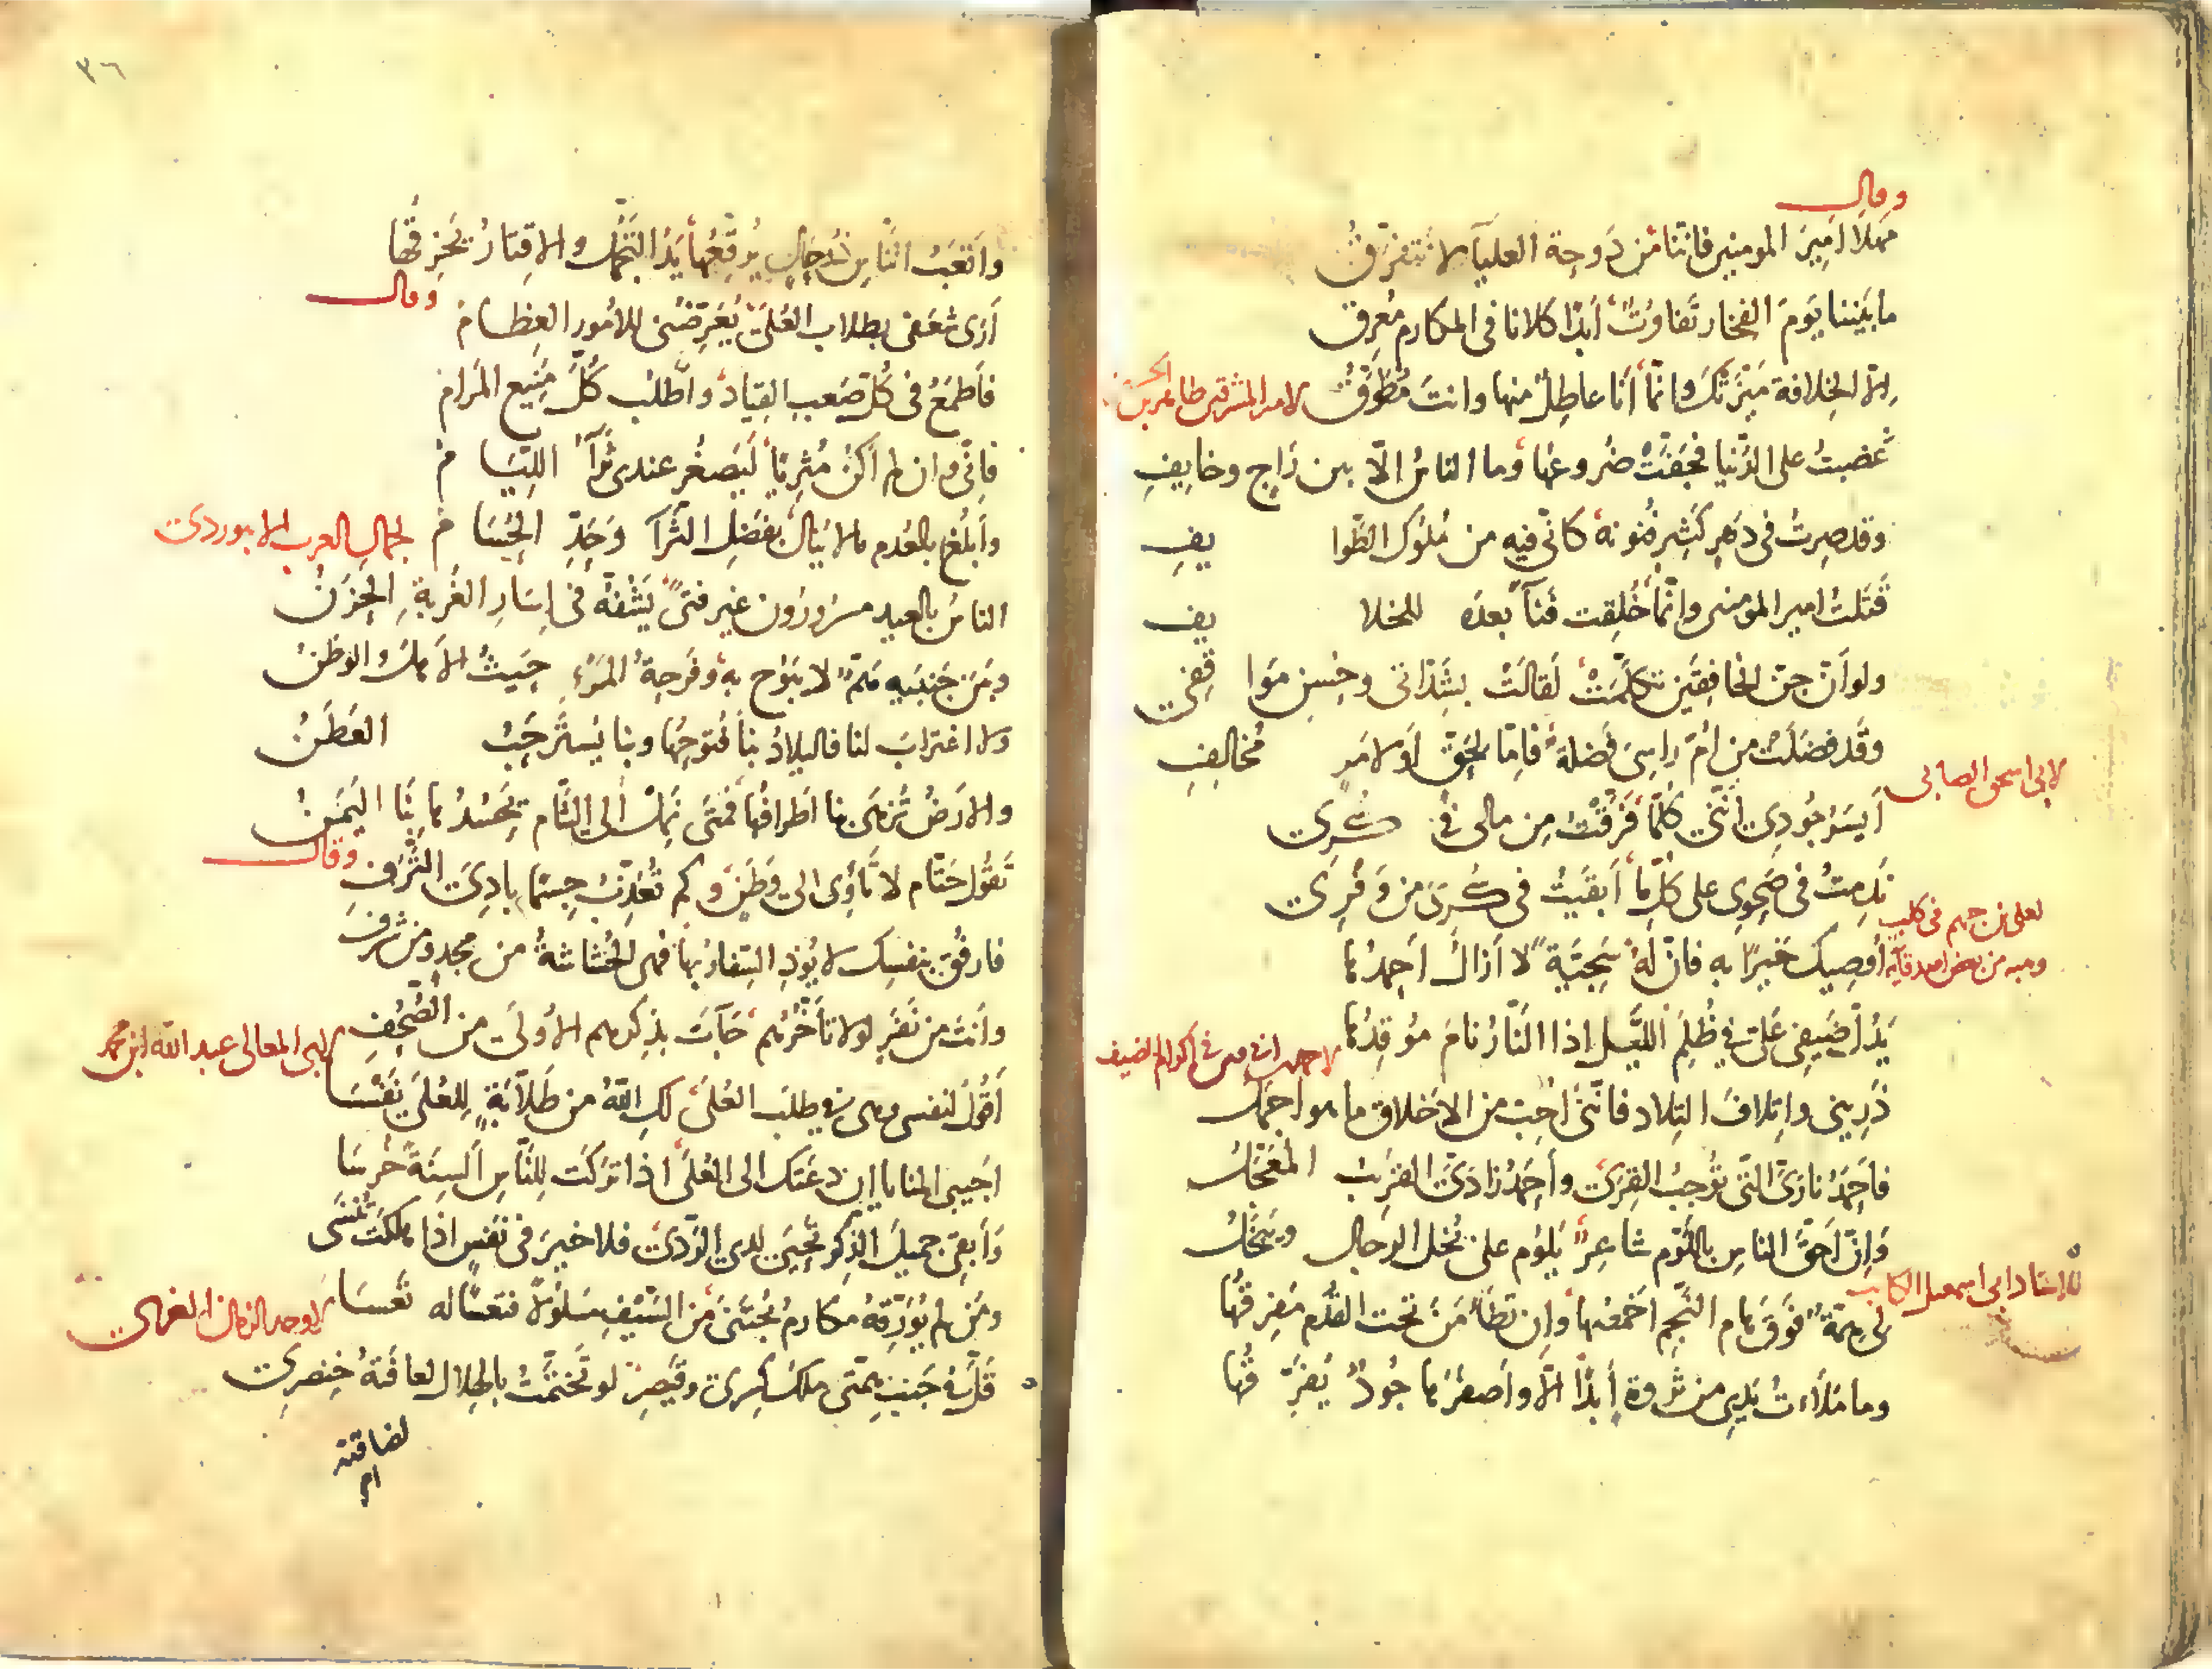 وقال
مهلا امير المومنين فاننا من دوحة العلياء لا نتفرق
ما بيننا يوم الفخار تفاوت أبدا كلانا في المكارم معرق
الا الخلافة ميزتك وانما أنا عاطل منها وانت مطوق لامير المشرقين طاهر بن الحسين
غضبت على الدنيا فجفت ضروعها وما الناس الا بين راج وخايف
وقد صرت في دهر كثير فنونه كاني فيه من ملوك الطوا يف
قتلت امير المومنين وانما خلقت فناء بعده للخلا يف
ولو ان جن الخافقين تكلمت لقالت بشداتي وحسن موا قفي
وقد فضلت من ام راسي فضلة فاما لحق او لامر مخالف
لابي اسحق الصابي
أيسر جودي انني كلما فرقت من مالي في سكري
ندمت في صحوي على كل ما أبقيت في سكري من وفري
لعلي بن جهم في كلب وهبه من بعض اصدقايه
أوصيك خيرا به فان له سجية لا أزال احمدها
يدل ضيفي علي في ظلم الليل اذا النار نام موقدها
ذريني واتلاف التلاد فانني احب من الاخلاق ما هو اجمل
فاحمد ناري التي توجب القرى وأحمد زادي القريب المعجل
وان احق الناس باللوم شاعر يلوم على بخل الرجال ويبخل
للاستاد ابي اسمعيل الكاتب
لي همة فوق هام النجم اخمصها وان تطامن تحت العدم مفرقها
وما ملات يدي من ثروة أبدا الا وأصفرها جود يفر قها
٣٦
واتعب الناس ذو حال يرقعها يد التجمل والاقتار يخرقها
وقال
أرى شعفي بطلاب العلى يعرضني للامور العظام
فاطمع في كل صعب القياد واطلب كل منيع المرام
فاني وان لم اكن مثريا ليصغر عندي ثراء الليام
وأبلغ بالعدم ما لا ينال بفضل الثراء وحد الحسام لجمال العرب الابيوردي
الناس بالعيد مسرورون غير فتى يشفه في إسار الغربة الحزن
وبين جنبيه هم لا يبوح به وفرحة المرء حيث الاهل والوطن
ولا اغتراب لنا فالبلاد بنا فتوحها وبنا يسترحب العطن
والارض تزهى بنا اطرافها فمتى نمل الى الشام تحسدها بنا اليمن
وقال
تقول حتام لا تأوي الى وطن وكم تعذب جسما بادي الشرف
فارفق بنفسك لا يوذ السفار بها فهي الحشاشة من مجد ومن شرف
وأنت من نفر لولا تأخرهم جاءت بذكرهم الاولى من الصحف لابي المعالي عبد الله ابن محمد
أقول لنفسي وهي في طلب العلى لك الله من طلابة للعلى نفسا
اجيبي المنايا ان دعتك الى العلى اذا تركت للناس السنة خرسا
وأبقي جميل الذكر تحيي لدى الردى فلا خير في نفس اذا هلكت تنسى
ومن لم يورثه مكارم يجتنى من السيف مسلولا فتعسا له تعسا لاوحد الزمان الغزي
قل في جنب همتي ملك كسرى وقيصر لو تختمت بالهلال لعاقته خنصري
لضاقته
ام